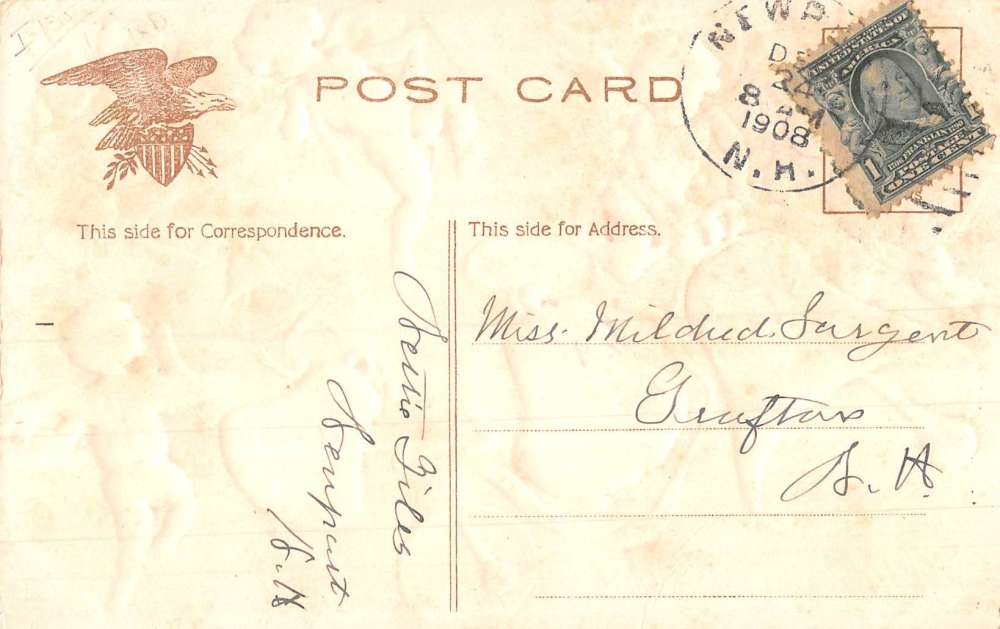 POST CARD
NEWP
DE
24
8
1908
N.H.
UNITED STATES OF
AMERICA
1
FRANKLIN
POSTAGE
ONE CENT
This side for Correspondence.
This side for Address.
Nettie Giles
Newport
N.H
Miss. Mildred Sargent
Grafton
N.H.